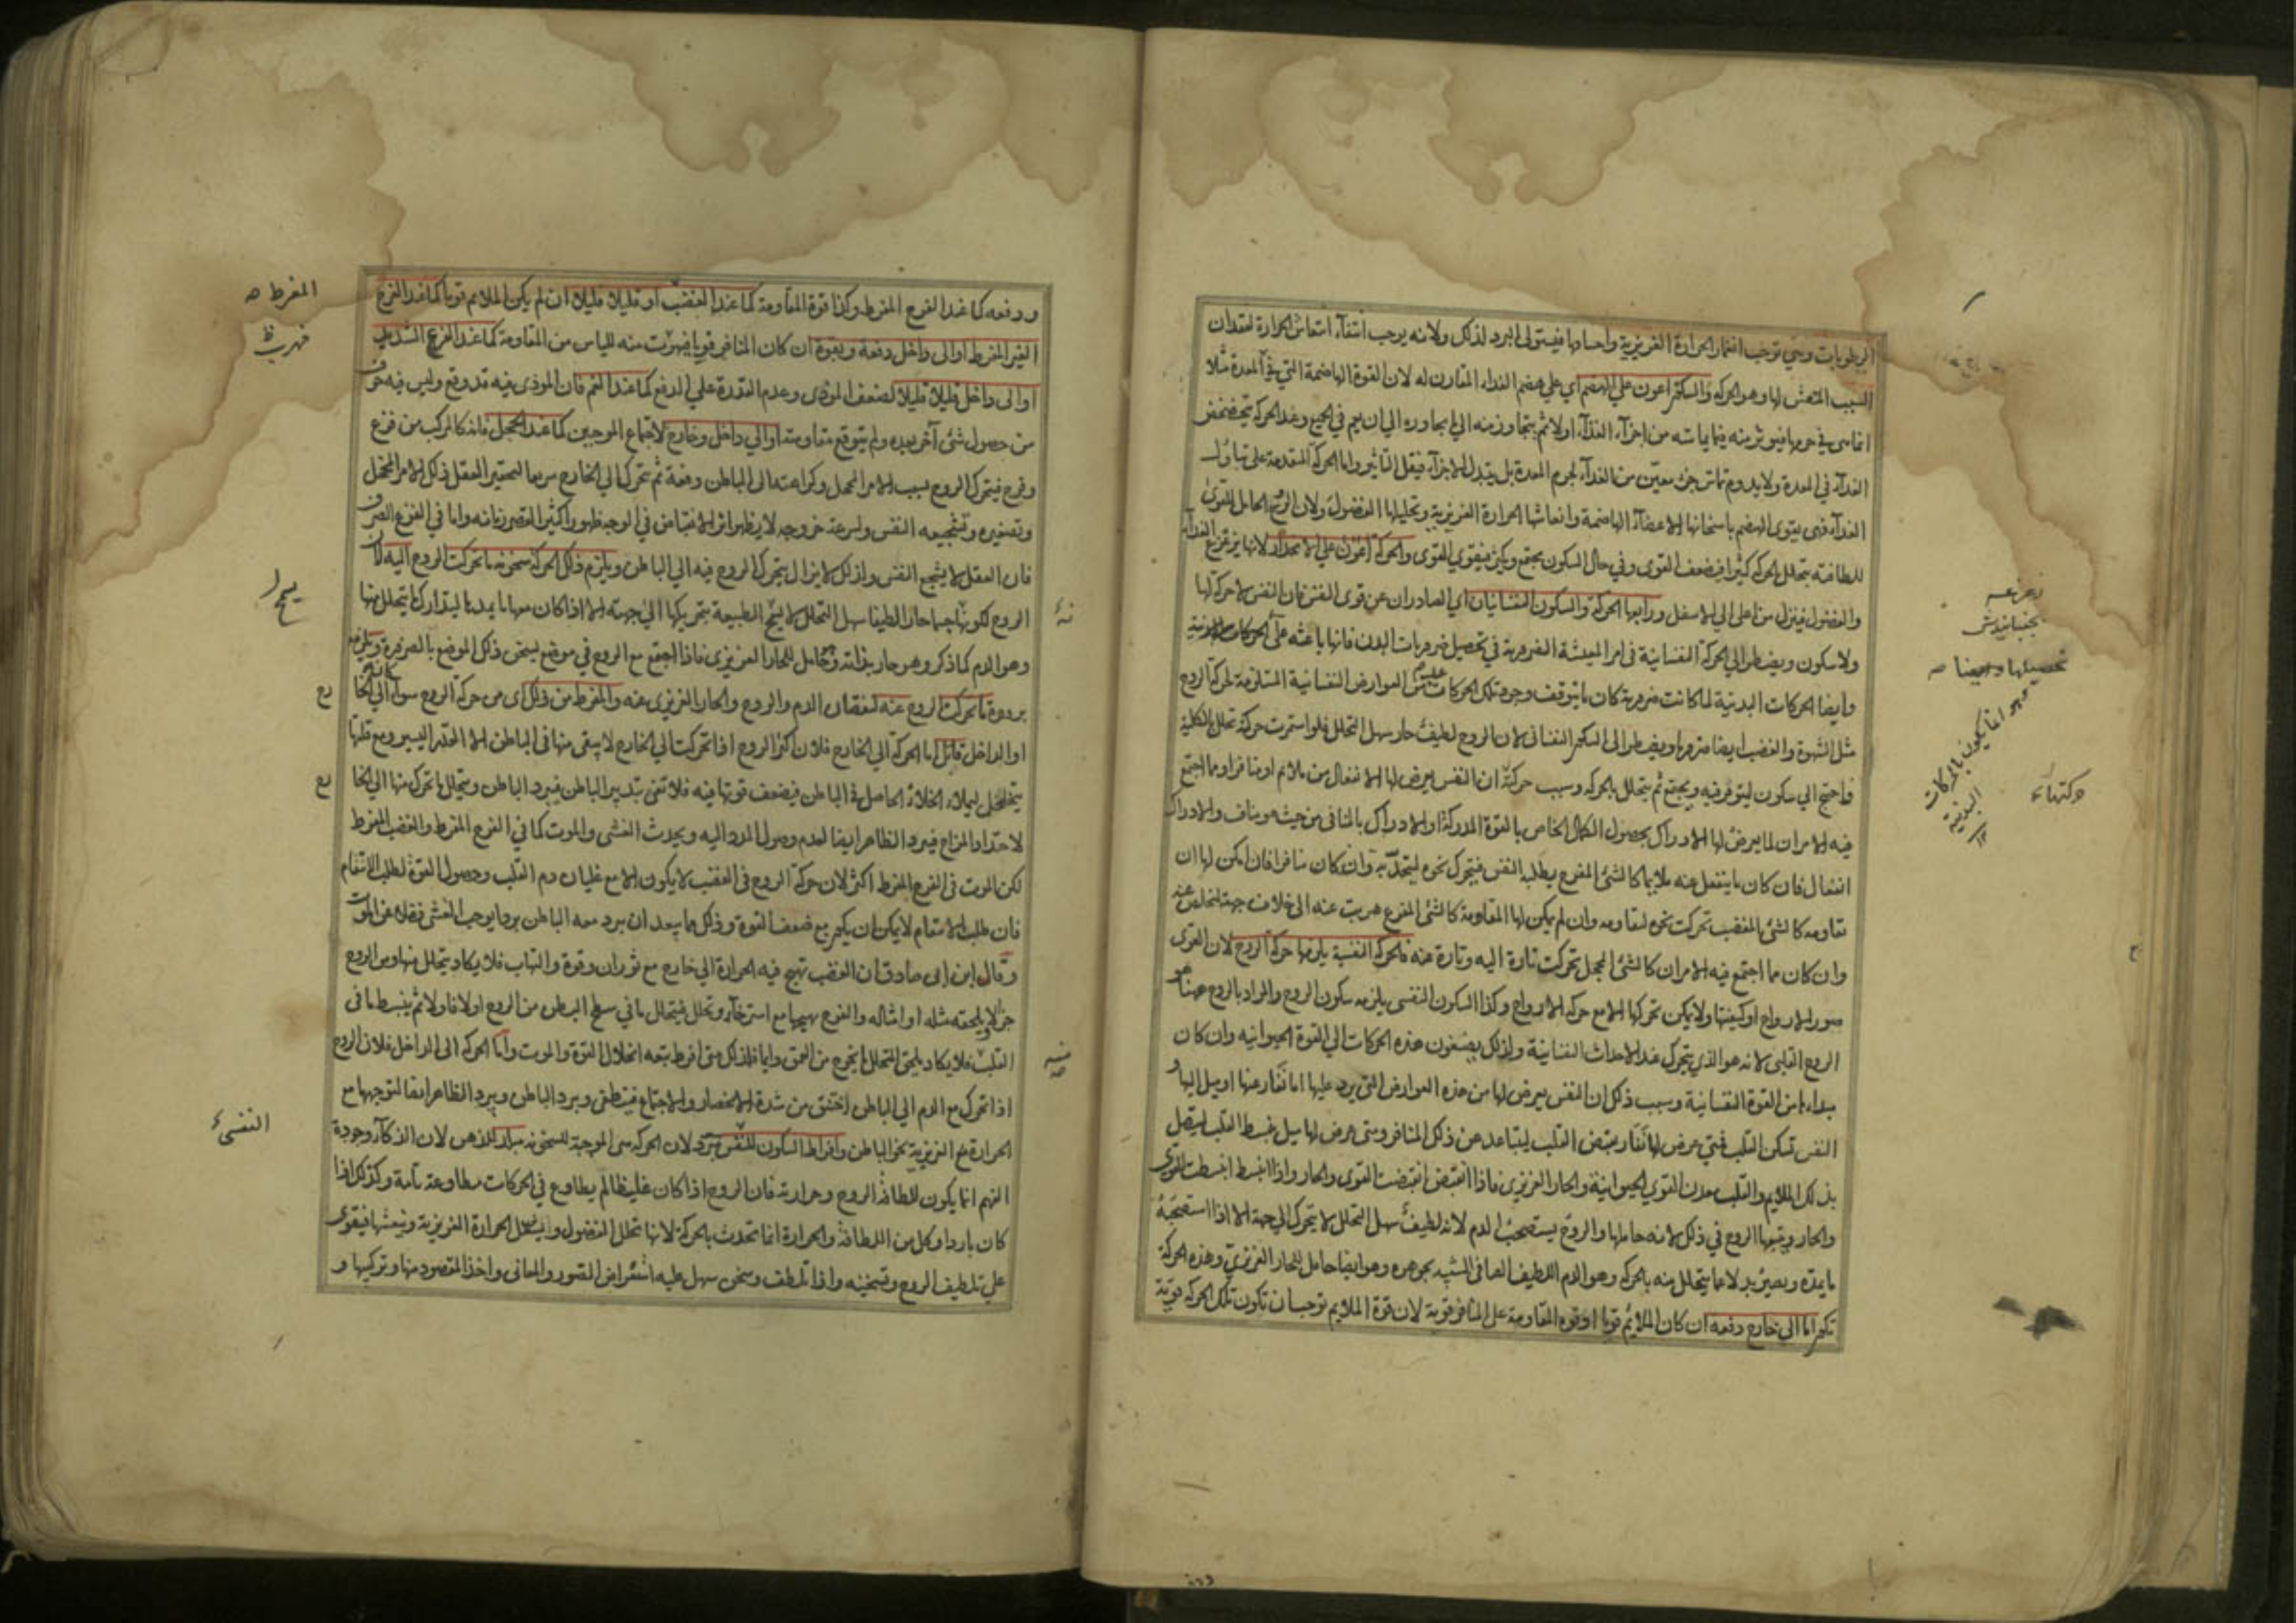 الرطوبات وهي توجب انغمار الحرارة الغريزية واحمادها فيستولى البرد لذلك ولانه يوجب انتفآء انتعاش الحرارة لفقدان
السبب المنعش لها وهو الحركه والسكون اعون على الهضم اى على هضم الغذاء المقارن له لان القوة الهاضمة التي في المعدة مثلا
انما هى في جرمها فيوثر منه فيما يماسه من اجزآء الغذآء اولا ثم يتجاوز منه الى ما يجاوره الى ان يعم في الجميع وعند الحركه يتخضخض
الغذآء في المعدة ولا يدوم تماس جزء معين من الغذآء لجرم المعدة بل يتبدل الاجزآء فيقل التاثير واما الحركة المتقدمة على تناول
الغدآء فهى يقوى الهضم باسخانها الاعضآء الهاضمة وانعاشها الحرارة الغريزية وتحليلها الفضول ولان الروح الحامل للقوى
للطافته يتحلل بالحركه كثيرا فيضعف القوى وفي حال السكون يجتمع ويكثر فيقوى القوى والحركة اعون على الانحدار لانها يزعزع الغدآء
والفضول فينزل من اعلى الى الاسفل ورابعها الحركة والسكون النفسانيان اي الصادران عن قوى النفس فان النفس لا حركة لها
ولا سكون ويضطر الى الحركة النفسانية فى امر المعيشة الضرورية في تحصيل ضروريات البدن فانها باعثه على الحركات البدنية
وايضا الحركات البدنية لما كانت ضرورية كان ما يتوقف وجود تلك الحركات عليه من العوارض النفسانية المستلزمة لحركة الروح
مثل الشهوة والغضب ايضا ضروريا ويضطر الى السكون النفسانى لان الروح لطيف حار سهل التحلل فلو استمرت حركته تحلل بالكلية
فاحتيج الى سكون ليتوفر فيه ويجتمع ثم يتحلل بالحركه وسبب حركته ان النفس يعرض لها الانفعال من ملايم او منافر او مما اجتمع
فيه الامران لما يعرض لها الادراك بحصول الكمال الخاص بالقوة المدركة او الادراك بالمنافى من حيث هو مناف والادراك
انفعال فان كان ما ينفعل عنه ملايما كالشئ المفرح يطلبه النفس فيتحرك نحوه ليتحد به وان كان منافرا فان امكن لها ان
تقاومه كالشئ المغضب تحركت نحوه لتقاومه وان لم يمكن لها المقاومة كالشئ المفزع هربت عنه الى خلاف جهته لتخلص عنه
وان كان مما اجتمع فيه الامران كالشئ المخجل تحركت تارة اليه وتارة عنه فالحركة النفسية يلزمها حركة الروح لان القوى
صور الارواح او كيفيتها ولا يمكن تحركها الا مع حركه الارواح وكذا السكون النفسى يلزمه سكون الروح والمراد بالروح ههنا هو
الروح القلبى لانه هو الذي يتحرك عند الاحداث النفسانية ولذلك يضيفون هذه الحركات الى القوة الحيوانيه وان كان
مبداءها من القوة النفسانية وسبب ذلك ان النفس يعرض لها من هذه العوارض التى يرد عليها اما نفار عنها او ميل اليها و
النفس تسكن القلب فمتى عرض لها نفار يقبض القلب ليتباعد عن ذلك المنافر ومتى عرض لها ميل يبسط القلب ليتصل
بذلك الملايم والقلب معدن القوى الحيوانية والحار الغريزى فاذا انقبض انقبضت القوى والحار واذا انبسط انبسطت القوى
والحار ويتبعها الروح في ذلك لانه حاملها والروح يستصحب الدم لانه لطيف سهل التحلل لا يتحرك الى جهة الا اذا استصحبه
ما يمده ويصير بدلا عما يتحلل منه بالحركه وهو الدم اللطيف الصافى الشبيه بجوهره وهو ايضا حامل للحار الغريزي وهذه الحركة
تكون اما الى خارج دفعة ان كان الملايم قويا او قوة المقاومة على المنافر قوية لان قوة الملايم توجب ان تكون تلك الحركه قوية
تحصيلها وايضا
انما يكون بالحركات
البدنية
ودفعه كما عند الفرح المفرط وكذا قوة المقاومة كما عند الغضب او قليلا قليلا ان لم يكن الملايم قويا كما عند الفرح
الغير المفرط او الى داخل دفعة وبقوة ان كان المنافر قويا فهربت منه للياس من المقاومة كما عند الفزع الشديد
او الى داخل قليلا قليلا لضعف الموذى وعدم القدرة على الدفع كما عند الغم فان الموذى فيه قد وقع وليس فيه خوف
من حصول شئ آخر بعده ولم يتوقع مقاومته او الى داخل وخارج لاجتماع الموجبين كما عند الخجل فانه كالمركب من فزع
وفرح فيتحرك الروح بسبب الامر المخجل وكراهته الى الباطن دفعة ثم تتحرك الى الخارج سريعا لتحقير العقل ذلك الامر المخجل
وتصغيره وتشجيعه النفس ولسرعة خروجه لا يظهر اثر الانقباض في الوجه ظهورا كثيرا لقصر زمانه واما في الفزع الصرف
فان العقل لا يشجع النفس ولذلك لا يزال يتحرك الروح فيه الى الباطن ويلزم ذلك الحركة سخونة ما تحركت الروح اليه لان
الروح لكونها جسما حارا لطيفا سهل التحلل لا يسمح الطبيعة بتحريكها الى جهة الا اذا كان معها ما يمدها ليتدارك ما يتحلل منها
وهو الدم كما ذكر وهو حار بذاته وحامل للحار الغريزى فاذا اجتمع مع الروح في موضع يسخن ذلك الموضع بالضرورة ويلزمه
برودة ما تحركت الروح عنه لفقدان الدم والروح والحار الغريزى عنه والمفرط من ذلك اى من حركة الروح سواء كانت الى الخا
او الداخل قاتل اما الحركة الى الخارج فلان اكثر الروح اذا تحركت الى الخارج لا يبقى منها فى الباطن الا القدر اليسير ومع قلتها
يتخلخل ليملأ الخلاء الحاصل في الباطن فيضعف قوتها فيه فلا تفى بتدبير الباطن فيبرد الباطن ويتحلل ما تحرك منها الى الخا
لاحتداد المزاج فيبرد الظاهر ايضا لعدم وصول المدد اليه ويحدث الغشى والموت كما في الفرح المفرط والغضب المفرط
لكن الموت فى الفرح المفرط اكثر لان حركة الروح فى الغضب لا يكون الا مع غليان دم القلب وحصول القوة لطلب الانتقام
فان طلب الانتقام لا يمكن ان يكون مع ضعف القوة وذلك مما يبعد ان يبرد معه الباطن بردا يوجب الغشى فضلا عن الموت
وقال ابن ابى صادق ان الغضب تهيج فيه الحرارة الى خارج مع ثوران وقوة والتهاب فلا يكاد يتحلل منها ومن الروح
جزء الا ويلحقه مثله او امثاله والفرح يهيجها مع استرخآء وتحلل فيتحلل ما في سطح البطن من الروح اولا فاولا ثم ينبسط ما فى
القلب فلا يكاد يلحق المتحلل ما يخرج من العمق دايما فلذلك متى افرط يتبعه انحلال القوة والموت واما الحركه الى الداخل فلان الروح
اذا تحرك مع الدم الى الباطن اختنق من شدة الانحصار والاجتماع فينطفى ويبرد الباطن ويبرد الظاهر ايضا لتوجهها مع
الحرارة الغريزية نحو الباطن وافراط السكون للنفس مبرد لان الحركه هى الموجبة للسخونة مبلد للذهن لان الذكآء وجودة
الفهم انما يكون للطافة الروح وحرارته فان الروح اذا كان غليظا لم يطاوع في الحركات مطاوعة تامة وكذلك اذا
كان باردا وكل من اللطافة والحرارة انما تحدث بالحركة لانها تحلل الفضول ويشعل الحرارة الغريزية وينعشها فيقوى
على تلطيف الروح وتسخينه واذا تلطف وسخن سهل عليه استعراض الصور والمعانى واخذ المقصود منها وتركيبها و
المفرط
فهربت
النفسى